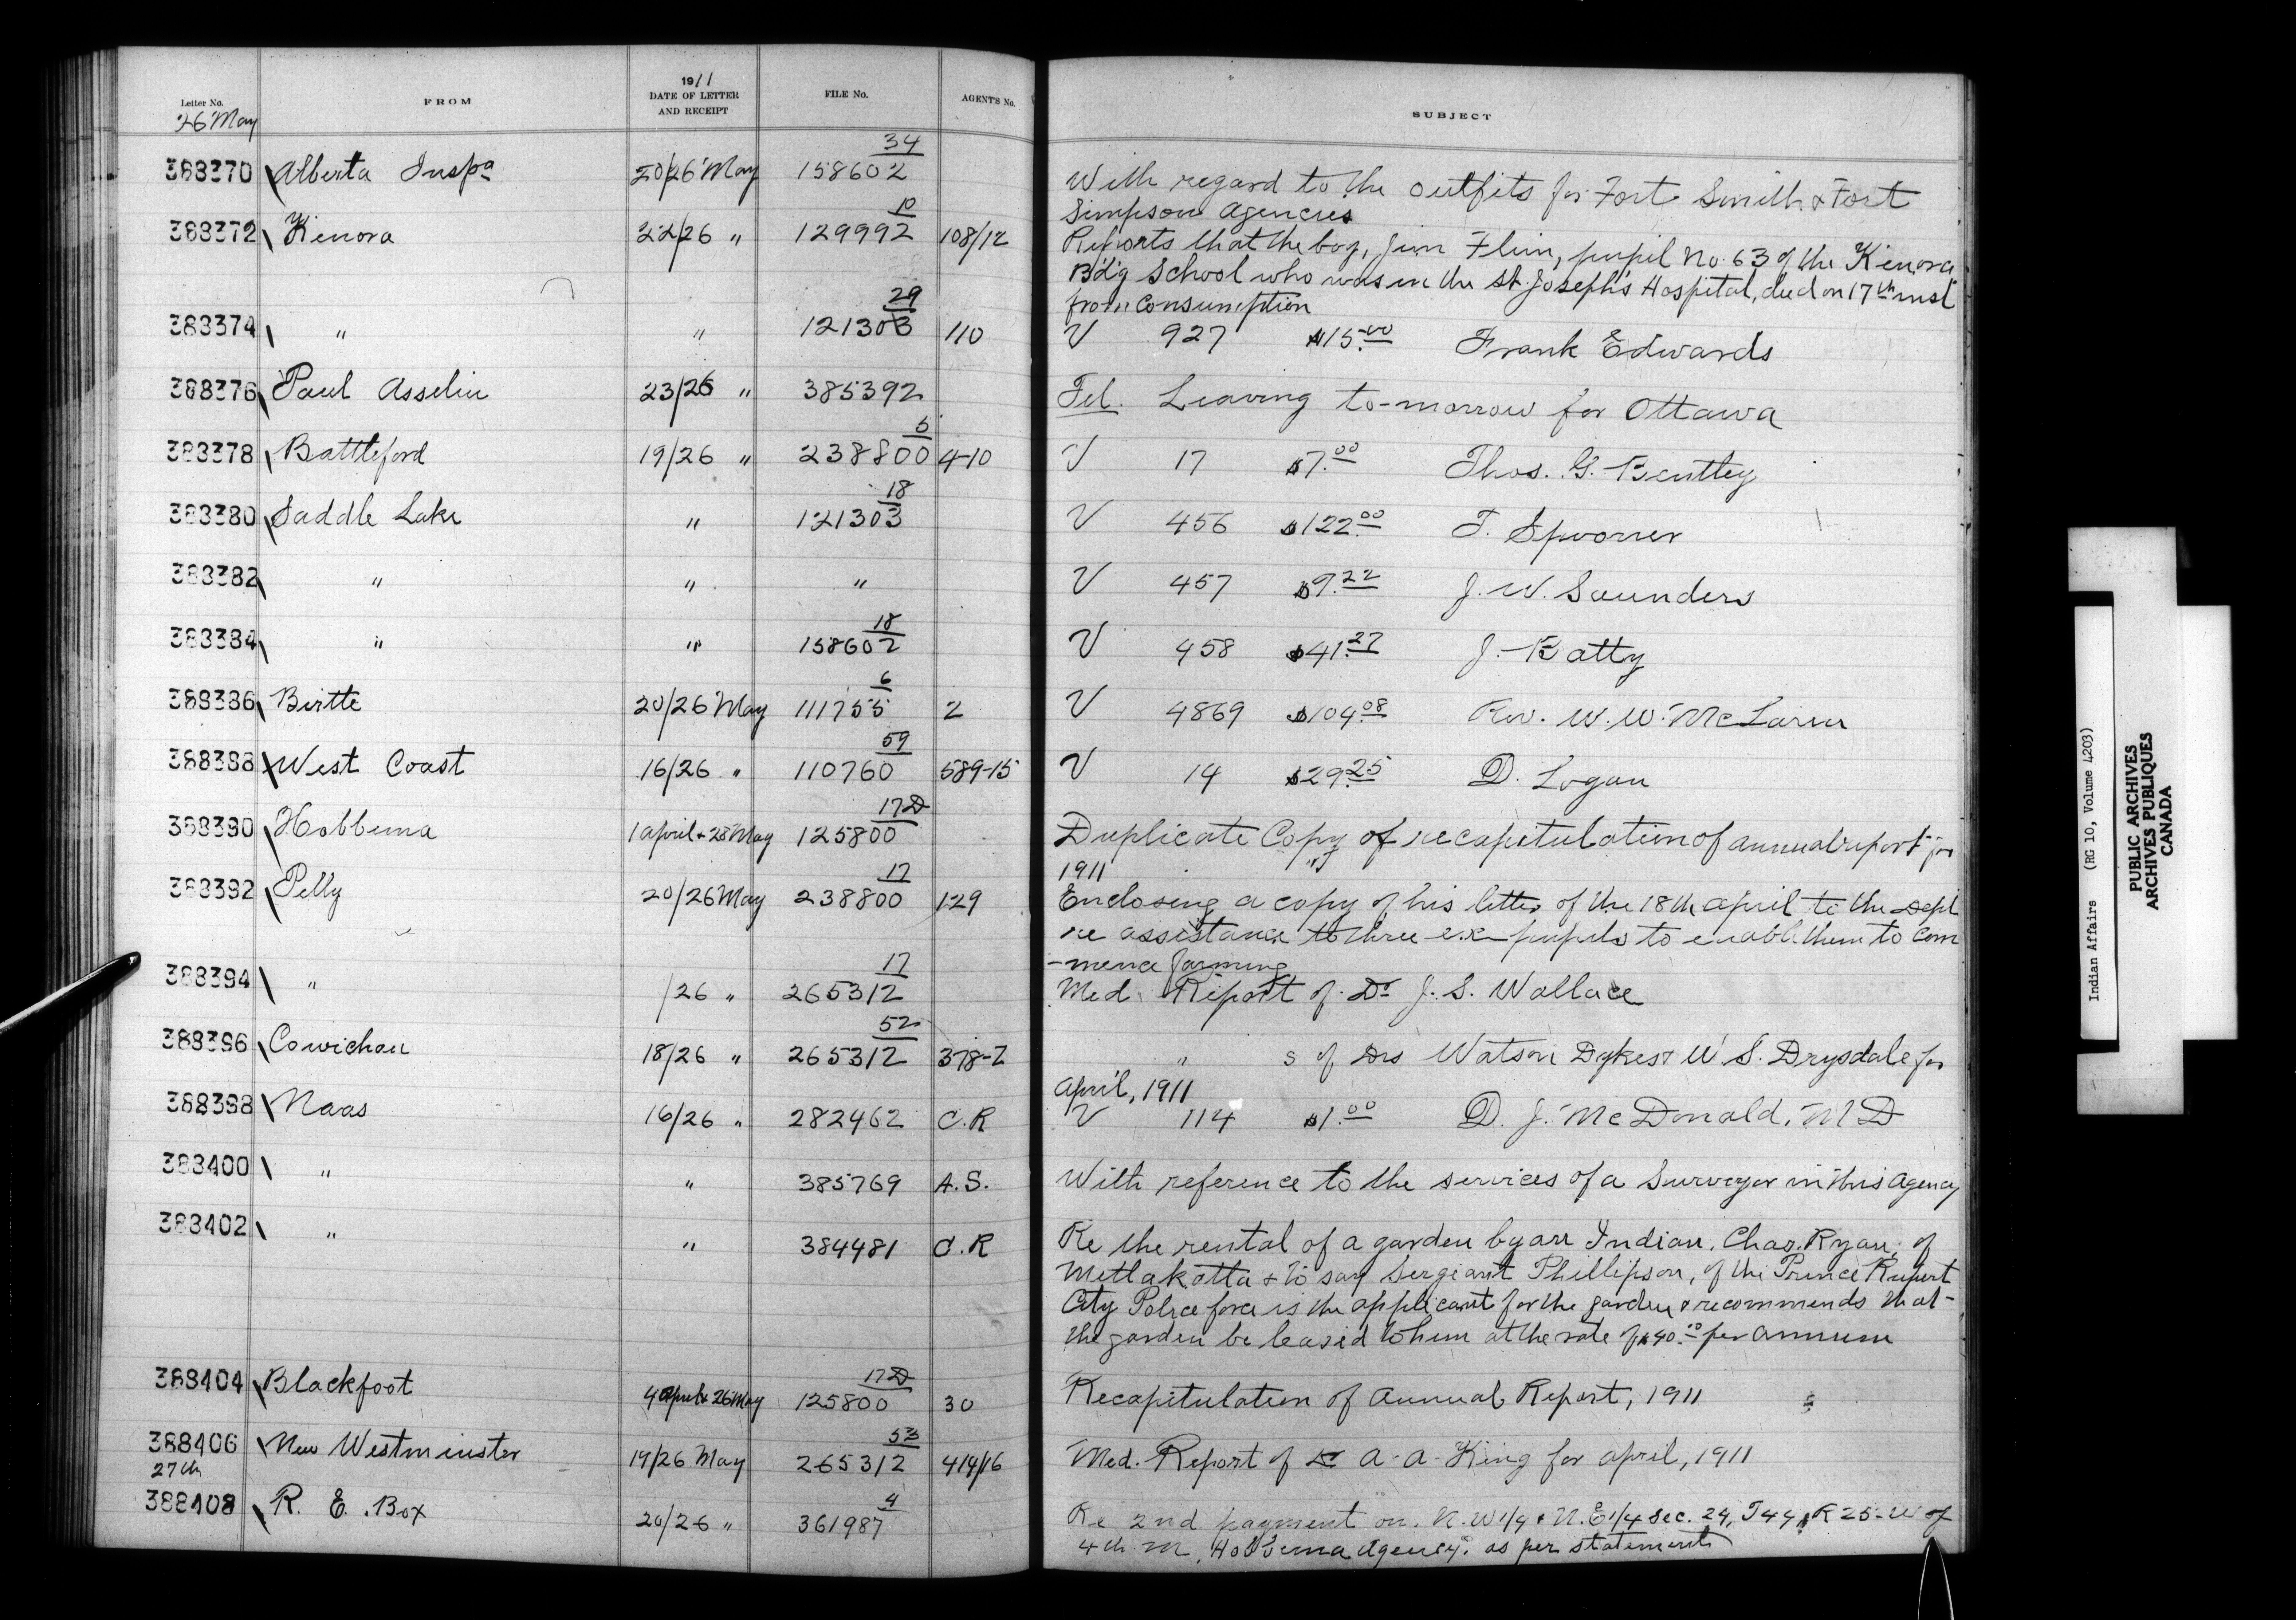 Letter No.
26 May
FROM
1911
DATE OF LETTER
AND RECEIPT
FILE No.
AGENT'S No.
SUBJECT
388370 Alberta Inspa 20/26 May 158602 34
With regard to the outfits for Fort Smith & Fort
Simpson Agencies
388372 Kenora 22/26 " 129992 10 108/12
Reports that the boy, Jim Flin, pupil No. 63 of the Kenora
B'd'g School who was in the St. Joseph's Hospital, died on 17th inst
from consumption
388374 " " 121303 29 110
V 927 $15.00 Frank Edwards
388376 Paul Asselin 23/26 " 385392
Tel. Leaving to-morrow for Ottawa
388378 Battleford 19/26 " 238800 5 4-10
V 17 $7.00 Thos. G. Bentley
388380 Saddle Lake " 121303 18
V 456 $122.00 T. Spvorrer
388382 " " "
V 457 $9.22 J. W. Saunders
388384 " " 158602 18
V 458 $41.27 J. Batty
388386 Birtle 20/26 May 111755 6 2
V 4869 $104.08 Rev. W. W. McLaren
388388 West Coast 16/26 " 110760 59 589-15
V 14 $29.25 D. Logan
388390 Hobbema 1 April & 28 May 125800 17D
Duplicate Copy of recapitulation of annual report for
1911
388392 Pelly 20/26 May 238800 17 129
Enclosing a copy of his letter of the 18th April to the Dept
re assistance to three ex-pupils to enable them to com
-mence farming
388394 " /26 " 265312 17
Med. Report of Dr J. S. Wallace
388396 Cowichan 18/26 " 265312 52 378-2
" s of Drs Watson Dykes & W. S. Drysdale for
April, 1911
388398 Naas 16/26 " 282462 C.R
V 114 $1.00 D. J. McDonald, MD
388400 " " 385769 A.S.
With reference to the services of a Surveyor in this Agency
388402 " " 384481 C.R
Re the rental of a garden by an Indian, Chas. Ryan, of
Metlakatla & to say Sergeant Phillipson, of the Prince Rupert
City Police force is the applicant for the garden & recommends that-
the garden be leased to him at the rate of $40.00 per annum
388404 Blackfoot 4 April & 26 May 125800 17D 30
Recapitulation of Annual Report, 1911
388406 New Westminster 19/26 May 265312 53 414/16
Med. Report of Dr A. A. King for April, 1911
27th
388408 R. E. Box 20/26 " 361987 4
Re 2nd payment on N.W 1/4 & N.E 1/4 Sec. 29, T44, R 25-W of
4th M, Hobbema Agency, as per statement
Indian Affairs (RG 10, Volume 4203)
PUBLIC ARCHIVES
ARCHIVES PUBLIQUES
CANADA